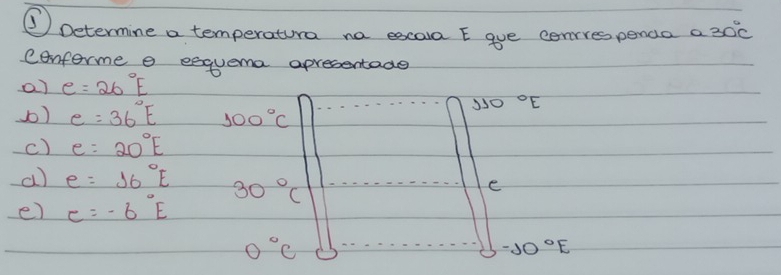 1) Determine a temperatura na escala E que comrresponda a 30°C
Conforme o esquema apresentado
a) e = 26°E
b) e = 36°E
c) e = 20°E
d) e = 16°E
e) e = -6°E
100°C
110 °E
30 °C
e
0 °C
-10 °E